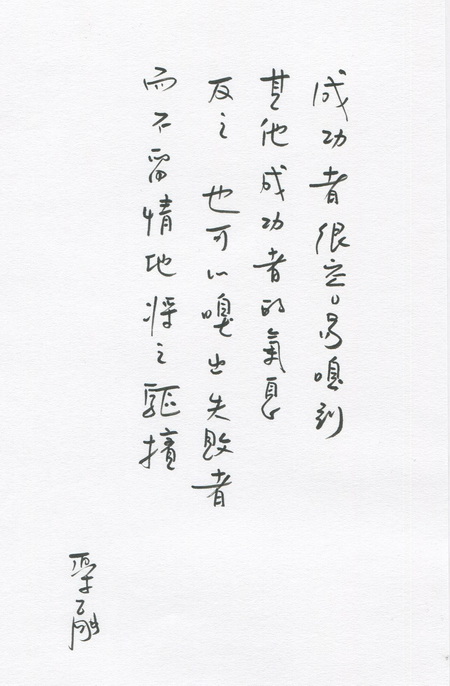 成功者很容易嗅到
其他成功者的氣息
反之 也可以嗅出失敗者
而不留情地將之驅擯